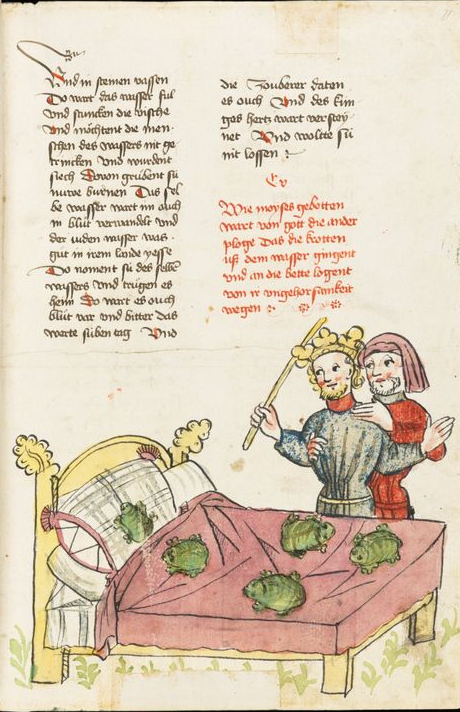 Und in steinen vassen
Do wart das wasser ful
vnd stuncken die vische
vnd möchtent die men
schen des wassers nit ge
trincken vnd wurdent
siech Dovon grubent sü
nuwe burnen Das sel
be wasser wart im ouch
in blüt verwandelt vnd
der iuden wasser was
gut in irem lande yesse
Do noment sü des selbē
wassers vnd trügen es
heim Do wart es ouch
blüt var vnd bitter das
werte süben tag Und
die Zouberer daten
es ouch Und des kün
ges hertz wart verstey
net Und wolte sü
nit lossen
Wie moyses gebotten
wart von gott die ander
ploge Das die krotten
uß dem wasser gingent
vnd an die bette logent
von ir ungehorsamkeit
wegen